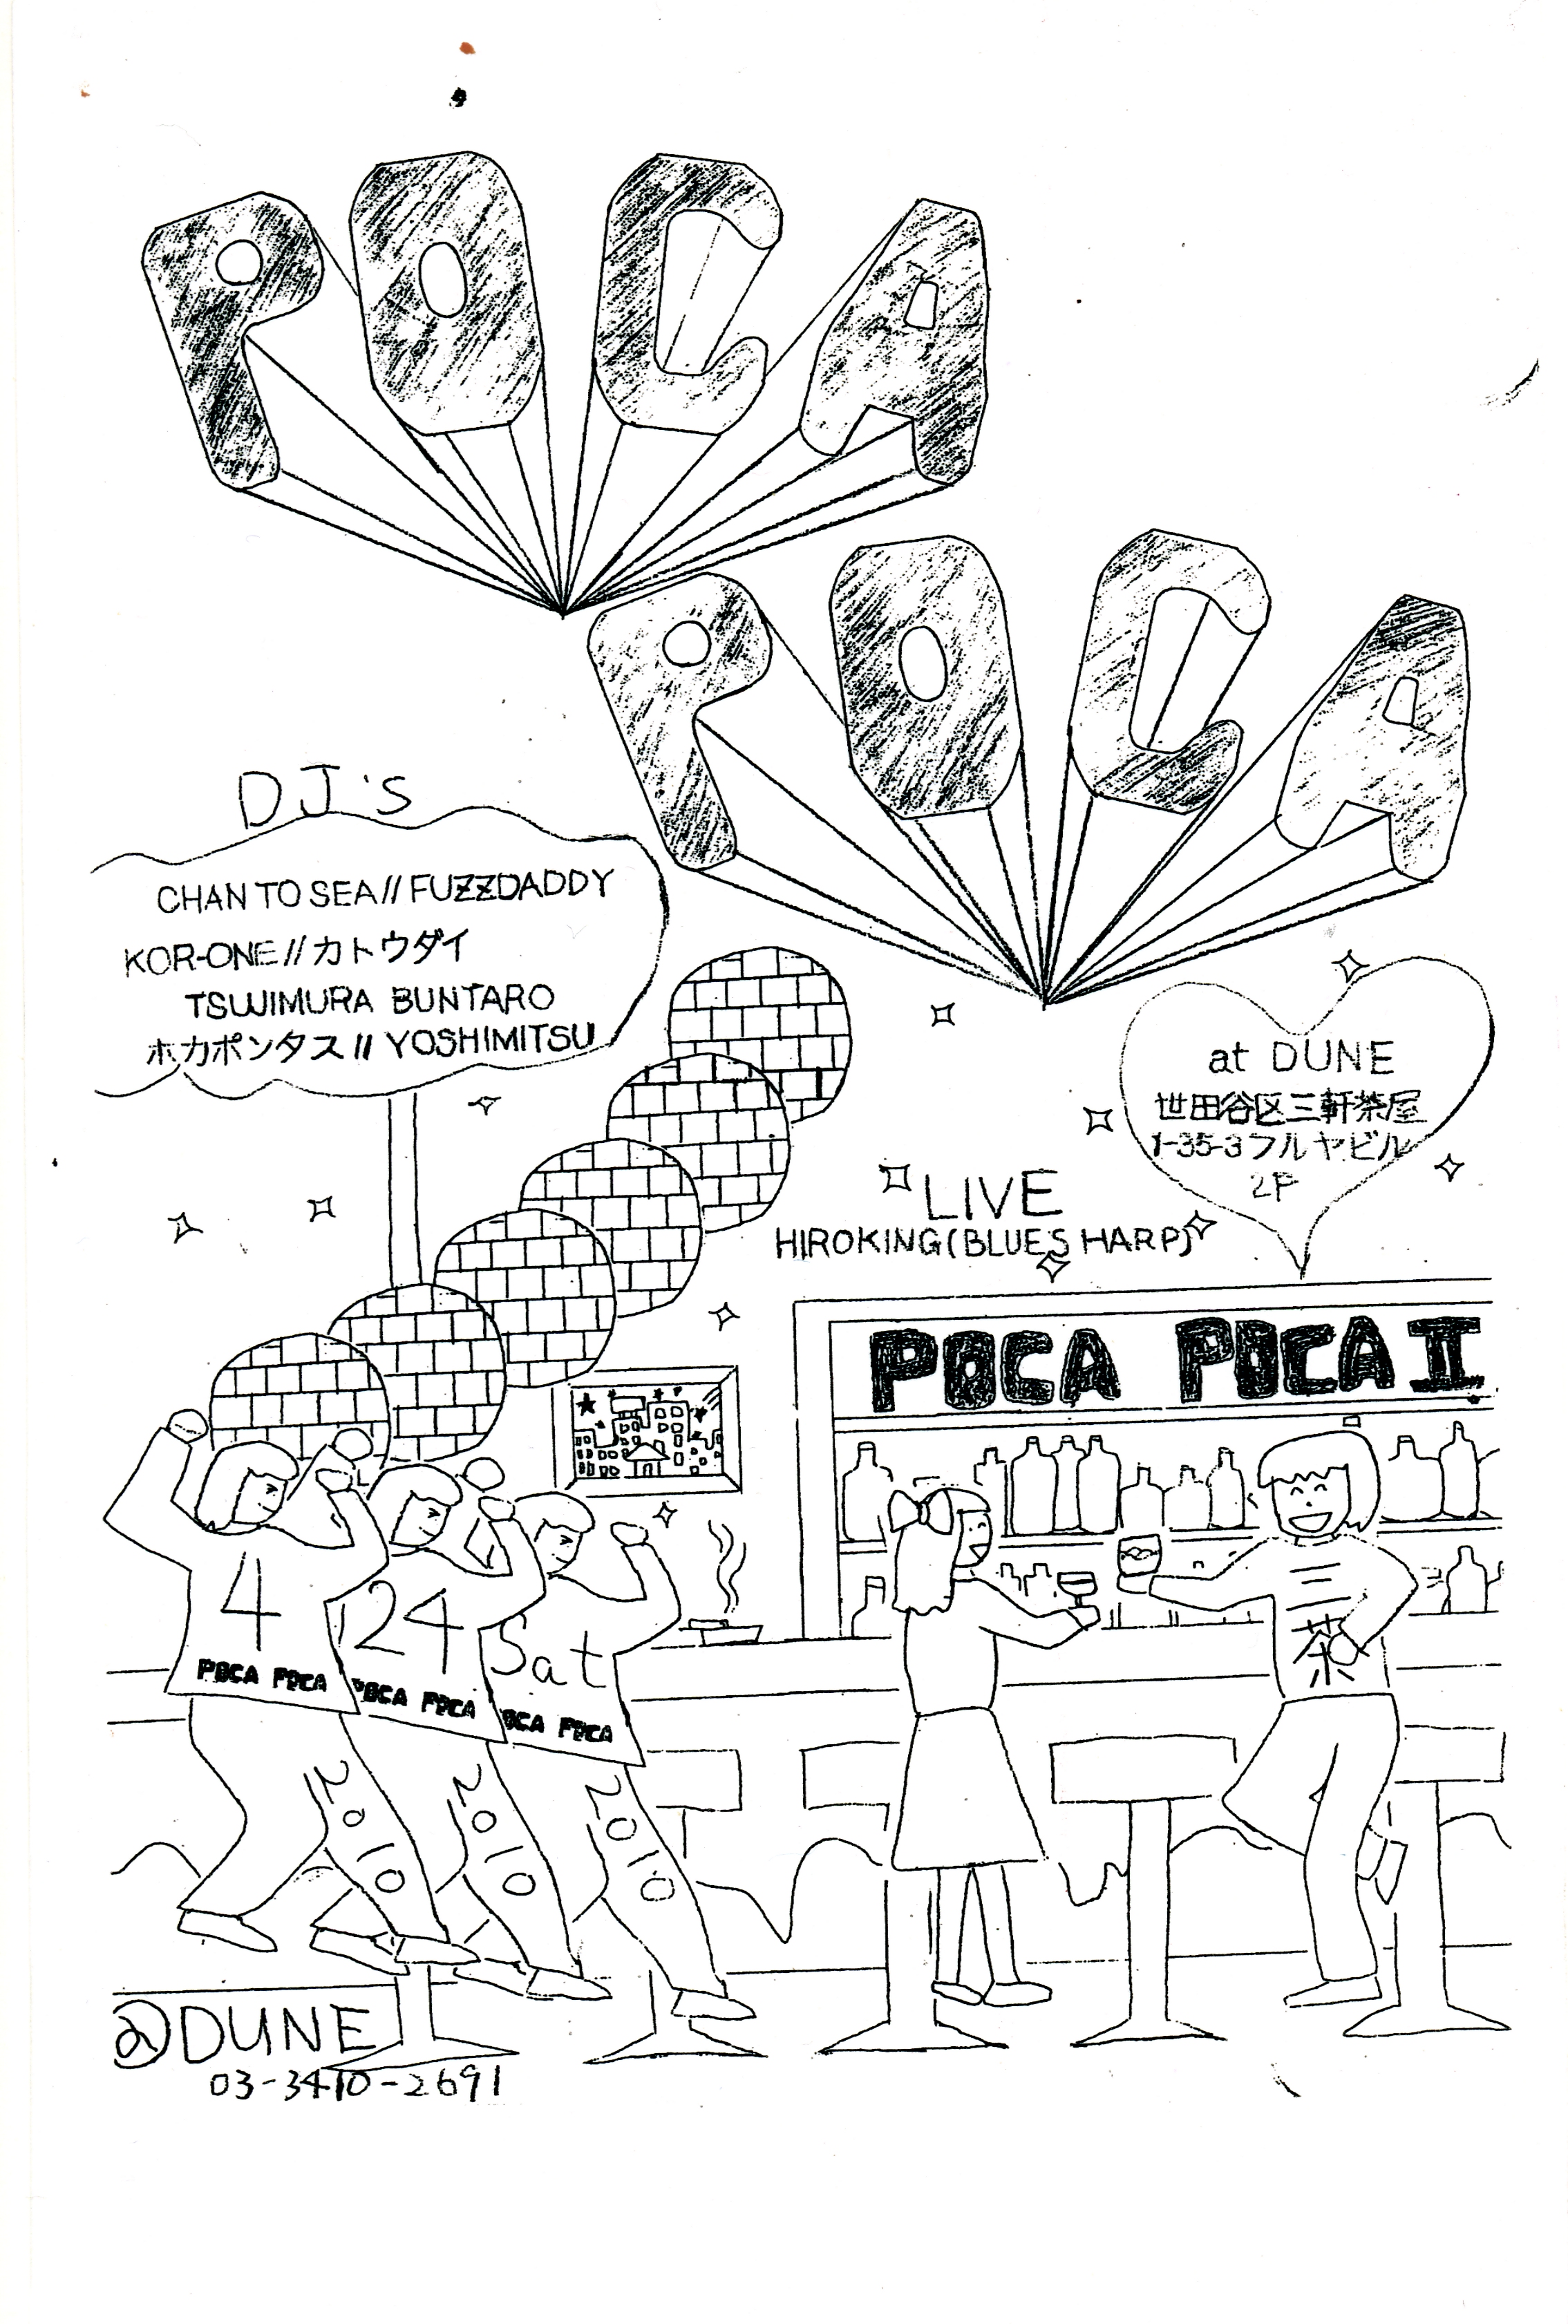 POCA
POCA
DJ's
CHAN TO SEA // FUZZDADDY
KOR-ONE // カトウダイ
TSUJIMURA BUNTARO
ホカポンタス // YOSHIMITSU
at DUNE
世田谷区三軒茶屋
1-35-3フルヤビル
2F
LIVE
HIROKING (BLUES HARP)
POCA POCA I
三
茶
4
24
Sat
POCA POCA
POCA POCA
POCA POCA
2010
2010
2010
@DUNE
03-3410-2691